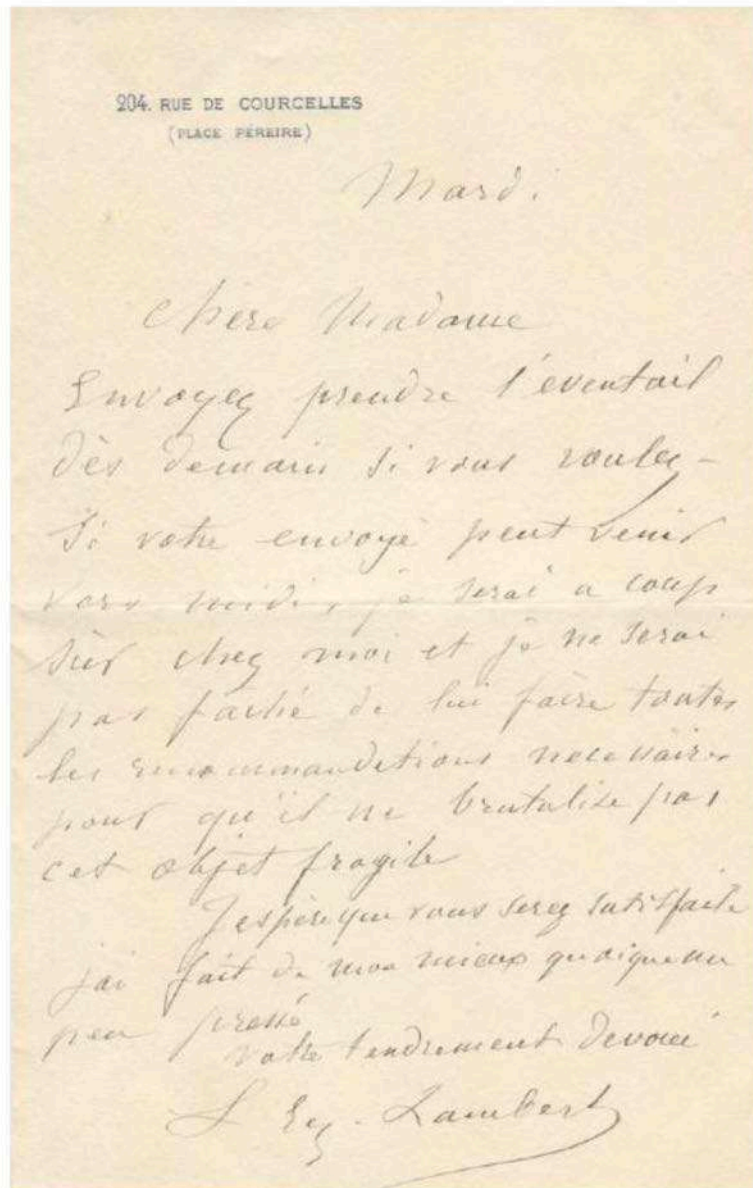 204. RUE DE COURCELLES
(PLACE PÉREIRE)
Mardi
Chère Madame
Envoyez prendre l'eventail
dès demain si vous voulez -
Si votre envoyé peut venir
vers midi, je serai a coup
sûr chez moi et je ne serai
pas faché de lui faire toutes
les recommandations necessaires
pour qu'il ne brutalise pas
cet objet fragile
J'espère que vous serez satisfaite
j'ai fait de mon mieux quoique un
peu pressé
votre tendrement devoué
L Eug. Lambert